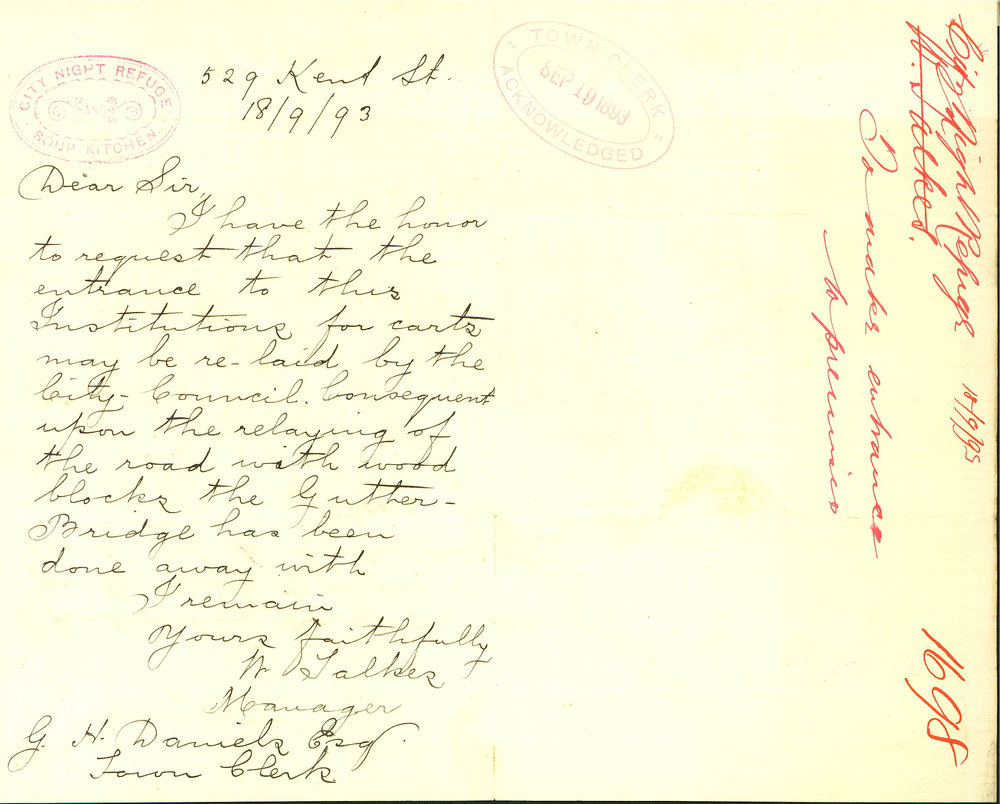 CITY NIGHT REFUGE
AND
SOUP KITCHEN.
529 Kent St.
18/9/93
Dear Sir,
I have the honor
to request that the
entrance to this
Institutions for carts
may be re-laid by the
City-Council. Consequent
upon the relaying of
the road with wood
blocks the Guther-
Bridge has been
done away with
I remain
Yours faithfully
W Talkes
Manager
G. H. Daniels Esq.
Town Clerk
"TOWN CLERK"
SEP 19 1893
ACKNOWLEDGED
City Night Refuge 18/9/93
Talkes.
To make entrance
to premises
1698